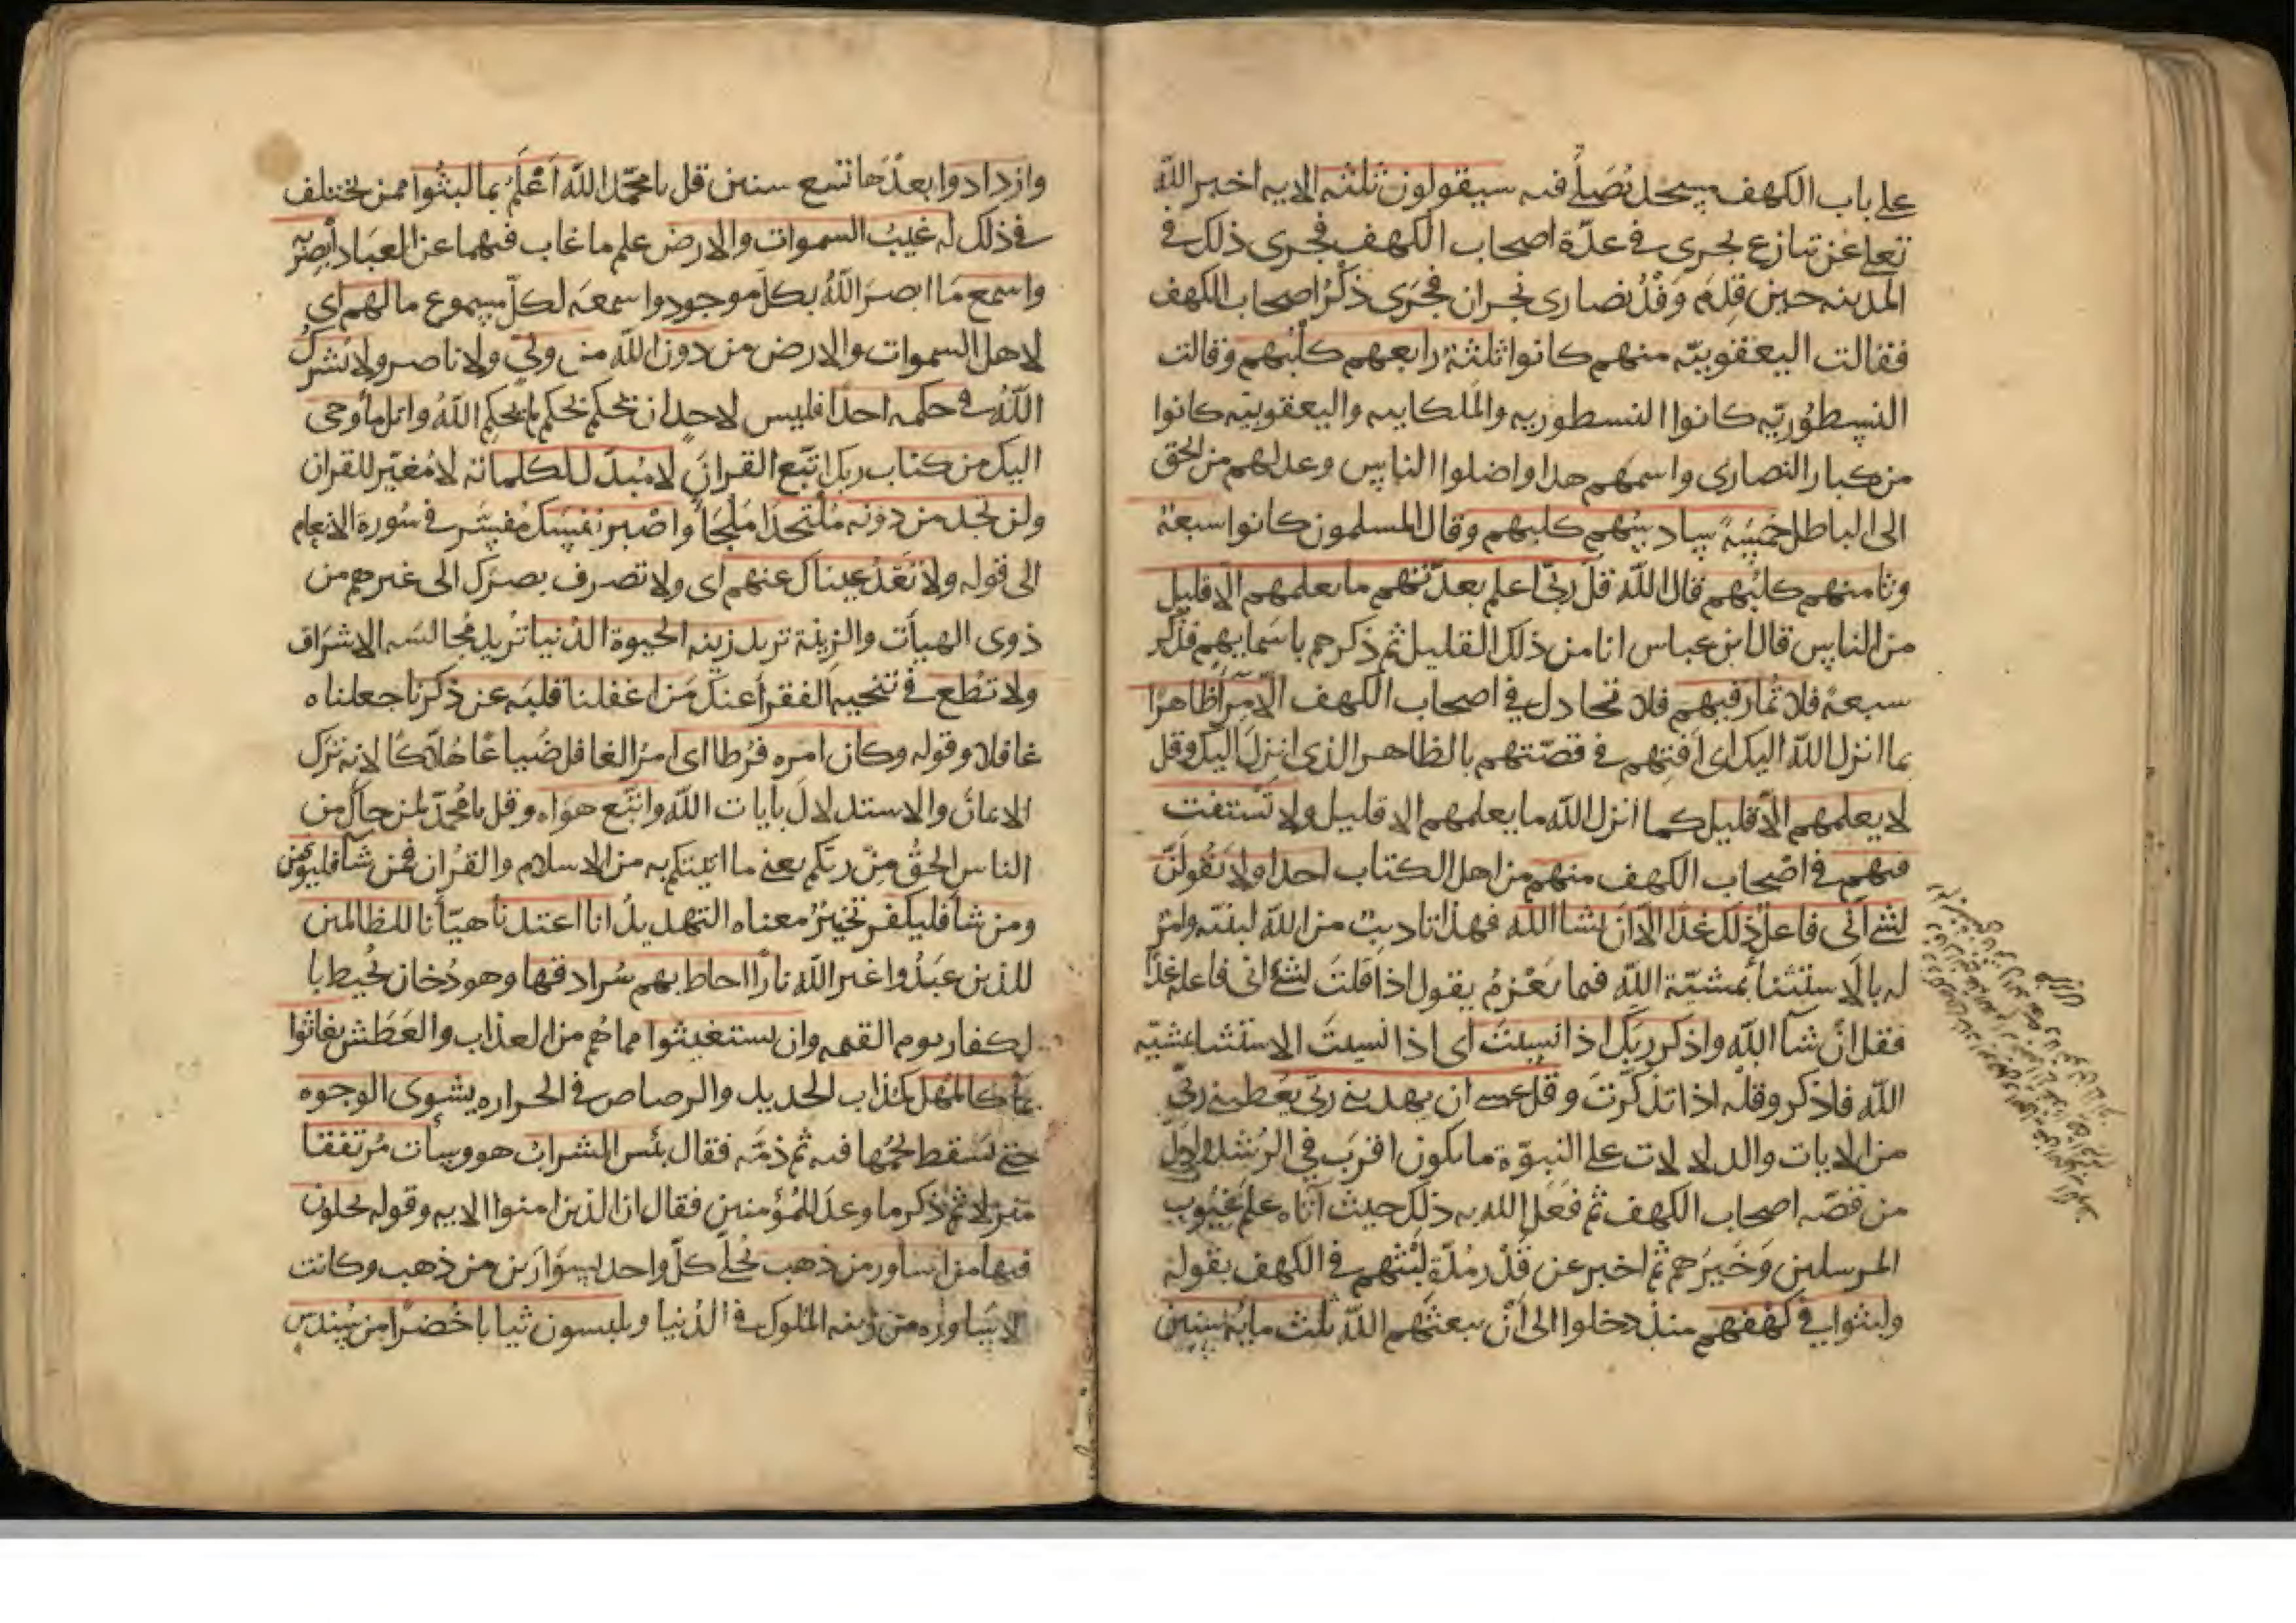 على باب الكهف مسجد نصلى فيه سيقولون ثلثة الايه اخبر الله
تعلى عن تنازع يجرى فى عدّة اصحاب الكهف فجرى ذلك فى
المدينه حين قدم وفد نصارى نجران فجرى ذكر اصحاب الكهف
فقالت اليعقوبيّه منهم كانوا ثلثة رابعهم كلبهم وقالت
النسطوريّه كانوا النسطوريه والملكاييه واليعقوبيه كانوا
من كبار النصارى واسمهم هذا واضلوا الناس وعدلهم من الحق
الى الباطل خمسة سادسهم كلبهم وقال المسلمون كانوا سبعة
وثامنهم كلبهم قال الله قل ربى اعلم بعدّتهم ما يعلمهم الّا قليل
من الناس قال ابن عباس انا من ذلك القليل ثم ذكرهم باسمايهم فذكر
سبعة فلا تمار فيهم فلا تجادل فى اصحاب الكهف الّا مرآ ظاهرا
بما انزل الله اليك اى افتهم فى قصّتهم بالظاهر الذى انزل اليك وقل
لا يعلمهم الّا قليل كما انزل الله ما يعلمهم الا قليل ولا تستفت
فيهم فى اصحاب الكهف منهم من اهل الكتاب احدا ولا تقولنّ
لشى انّى فاعل ذلك غدا الّا ان يشا الله فهذا تاديب من الله لنبيّه وامر
له بالاستثنا بمشيّة الله فيما يعزم يقول اذا قلت لشى انى فاعله غدا
فقل ان شآ الله واذكر ربّك اذا نسيت اى اذا نسيت الاستثنا بمشيّه
الله فاذكر وقله اذا تذكّرت وقل عسى ان يهدينى ربّى يعطينى ربّى
من الايات والدلالات على النبوّة ما يكون اقرب فى الرشد وادلّ
من قصّه اصحاب الكهف ثم فعل الله به ذلك حيث آتاه علم غيوب
المرسلين وخبرهم ثم اخبر عن قدر مدّة لبثهم فى الكهف بقوله
ولبثوا فى كهفهم منذ دخلوا الى ان بعثهم الله ثلث مايه سنين
وازدادوا بعدها تسع سنين قل يا محمّد الله اعلم بما لبثوا ممن يختلف
فى ذلك له غيب السموات والارض علم ما غاب فيهما عن العباد ابصر به
واسمع ما ابصر الله بكل موجود واسمعه لكلّ مسموع ما لهم اى
لاهل السموات والارض من دون الله من ولىّ ولا ناصر ولا يشرك
الله فى حكمه احدا فليس لاحد ان يحكم بحكم لم يحكم الله واتل ما اوحى
اليك من كتاب ربك اتبع القران لا مبدّل لكلماته لا مغيّر للقران
ولن تجد من دونه ملتحدا ملجأ واصبر نفسك مفسّر فى سورة الانعام
الى قوله ولا تعد عيناك عنهم اى ولا تصرف بصرك الى غيرهم من
ذوى الهيأت والزينة تريد زينه الحيوة الدنيا تريد مجالسه الاشراف
ولا تطع فى تنحيه الفقرآ عنك من اغفلنا قلبه عن ذكرنا جعلناه
غافلا وقوله وكان امره فرطا اى امر الغافل ضياعا هلاكا لانه ترك
الايمان والاستدلال بايات الله واتبع هواه وقل يا محمّد لمن جاك من
الناس الحق من ربّكم يعنى ما اتيتكم به من الاسلام والقران فمن شآ فليؤمن
ومن شا فليكفر تخيير معناه التهديد انا اعتدنا هيّأنا للظالمين
للذين عبدوا غير الله نارا احاط بهم سرادقها وهو دخان يحيط با
لكفار يوم القيمه وان يستغيثوا مما هم من العذاب والعطش يغاثوا
بمآ كالمهل كمذاب الحديد والرصاص فى الحراره يشوى الوجوه
حتى يسقط لحمها فيه ثم ذمّه فقال بئس الشراب هو وسأت مرتفقا
منزلا ثم ذكر ما وعد للمؤمنين فقال ان الذين امنوا الايه وقوله يحلون
فيها من اساور من ذهب يحلى كلّ واحد بسوارين من ذهب وكانت
الاساوره من زينه الملوك فى الدنيا ويلبسون ثيابا خضرا من سندس